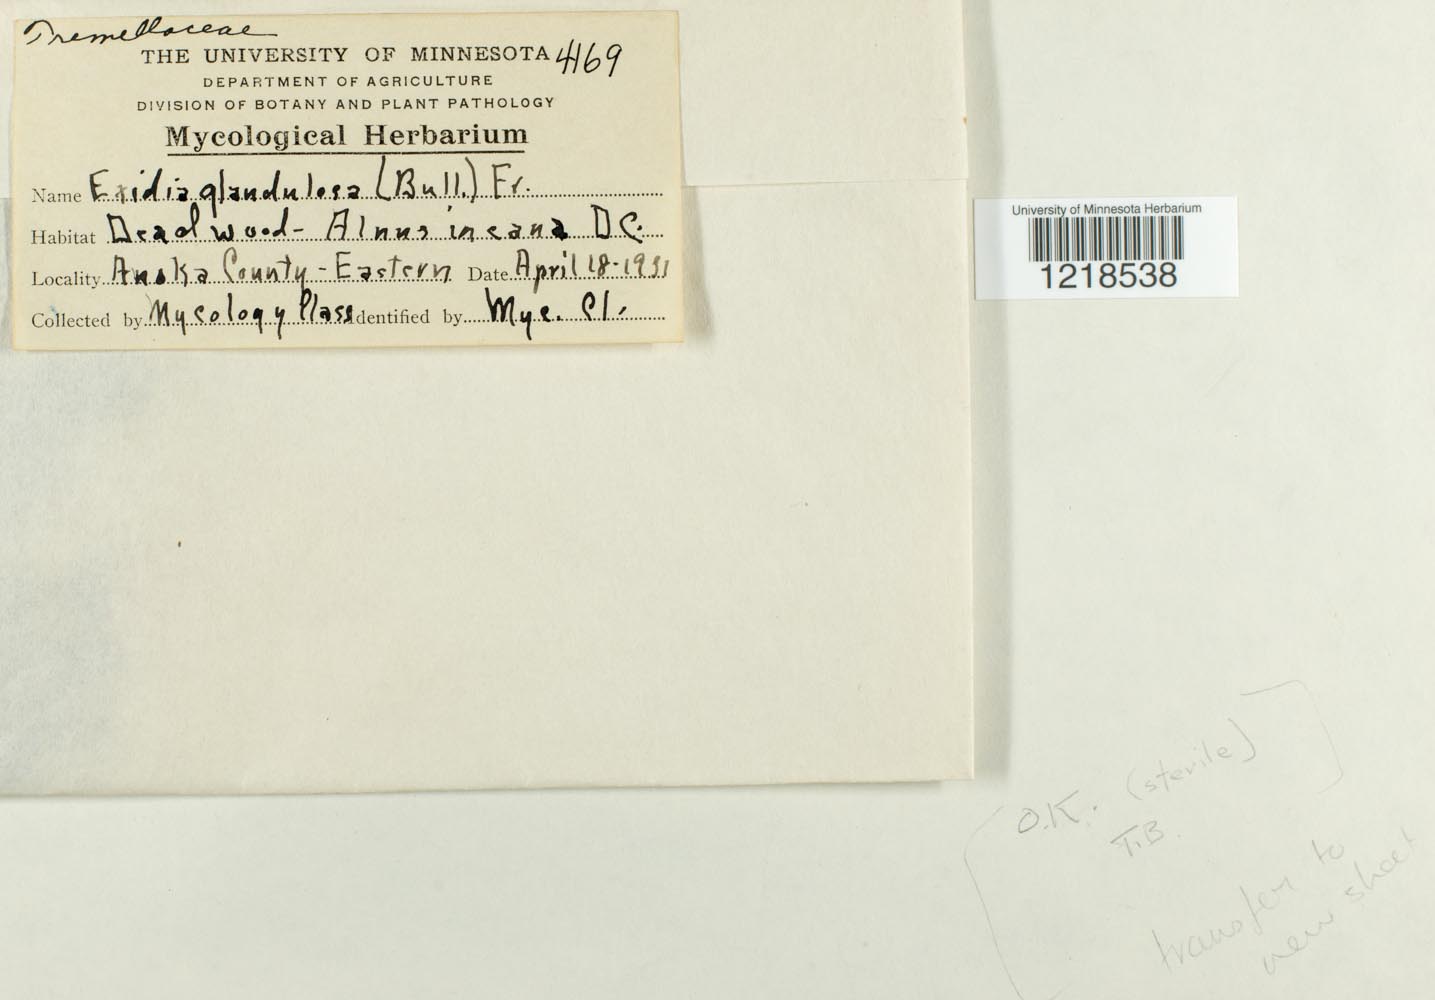 Tremellaceae
THE UNIVERSITY OF MINNESOTA 4169
DEPARTMENT OF AGRICULTURE
DIVISION OF BOTANY AND PLANT PATHOLOGY
Mycological Herbarium
Name Exidia glandulosa (Bull.) Fr.
Habitat Dead wood - Alnus incana DC.
Locality Anoka County - Eastern Date April 18-1931
Collected by Mycology Class Identified by Myc. Cl.
University of Minnesota Herbarium
1218538
O.K. (sterile)
T.B.
transfer to
new sheet